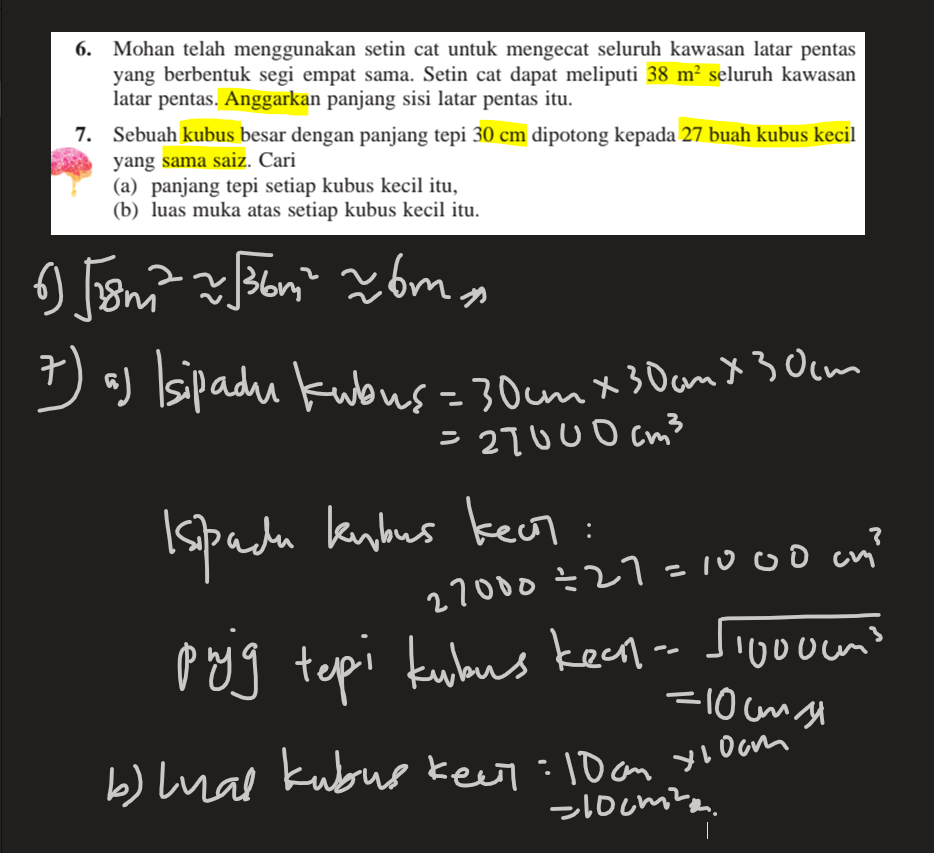 6. Mohan telah menggunakan setin cat untuk mengecat seluruh kawasan latar pentas
yang berbentuk segi empat sama. Setin cat dapat meliputi 38 m² seluruh kawasan
latar pentas. Anggarkan panjang sisi latar pentas itu.
7. Sebuah kubus besar dengan panjang tepi 30 cm dipotong kepada 27 buah kubus kecil
yang sama saiz. Cari
(a) panjang tepi setiap kubus kecil itu,
(b) luas muka atas setiap kubus kecil itu.
6) √38m² ≈ √36m² ≈ 6m
7) a) Isipadu kubus = 30cm × 30cm × 30cm
= 27000 cm³
Isipadu kubus kecil :
27000 ÷ 27 = 1000 cm³
pnjg tepi kubus kecil = √1000cm³
= 10 cm
b) Luas kubus kecil = 10cm × 10cm
= 10cm²